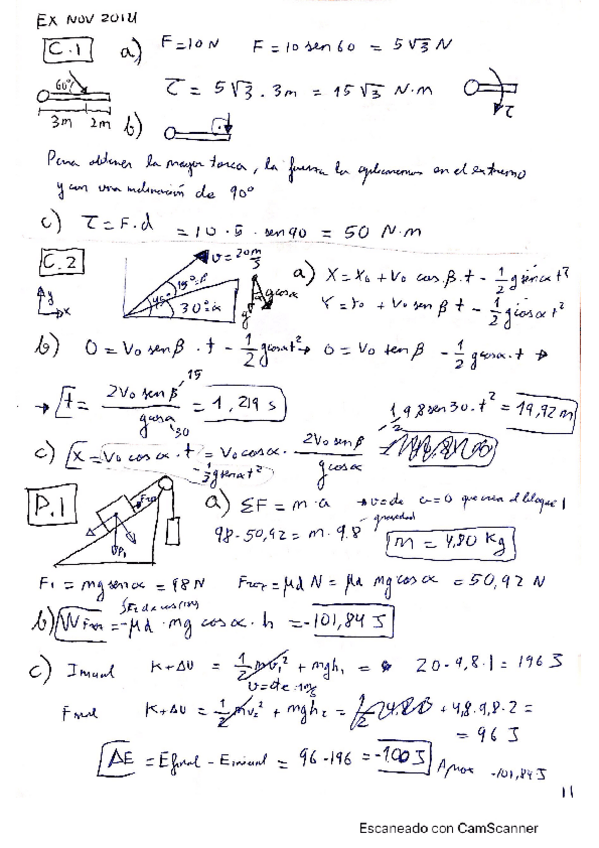 EX NOV 2014
C.1 a) F=10N F=10 sen 60 = 5√3 N
60°
τ = 5√3 · 3m = 15√3 N·m
τ
3m 2m b)
Para obtener la mayor torca, la fuerza la aplicaremos en el extremo
y con una inclinación de 90°
c) τ=F·d = 10·5·sen90 = 50 N·m
C.2 v=20 m/s a) X=X0+V0 cos β t - 1/2 g sen α t²
15°=β 45° 30°=α g cos α
y x Y=Y0 + V0 sen β t - 1/2 g cos α t²
b) 0=V0 sen β · t - 1/2 g cos α t² → 0=V0 sen β - 1/2 g cos α · t →
→ t = 2V0 sen β / g cos α = 1,219 s
15 30
- 1/2 9,8 sen 30 · t² = 19,92 m
c) X=V0 cos α · t = V0 cos α · 2V0 sen β / g cos α =
- 1/2 g sen α t²
P.1 a) ΣF = m·a → v=cte a=0 que crea el bloque 1
gravedad
98 - 50,92 = m · 9.8 m = 4,80 kg
P1
F1 = mg sen α = 98N Froz = μd N = μd mg cos α = 50,92 N
b) WFroz = -μd · mg cos α · h = -101,84 J
c) Inicial K+ΔU = 1/2 mv1² + mgh1 = 20·9,8·1 = 196 J
Final K+ΔU = 1/2 mv2² + mgh2 = + 4,8·9,8·2 =
= 96 J
ΔE = Efinal - Einicial = 96-196 = -100J Aprox -101,84J
11
Escaneado con CamScanner